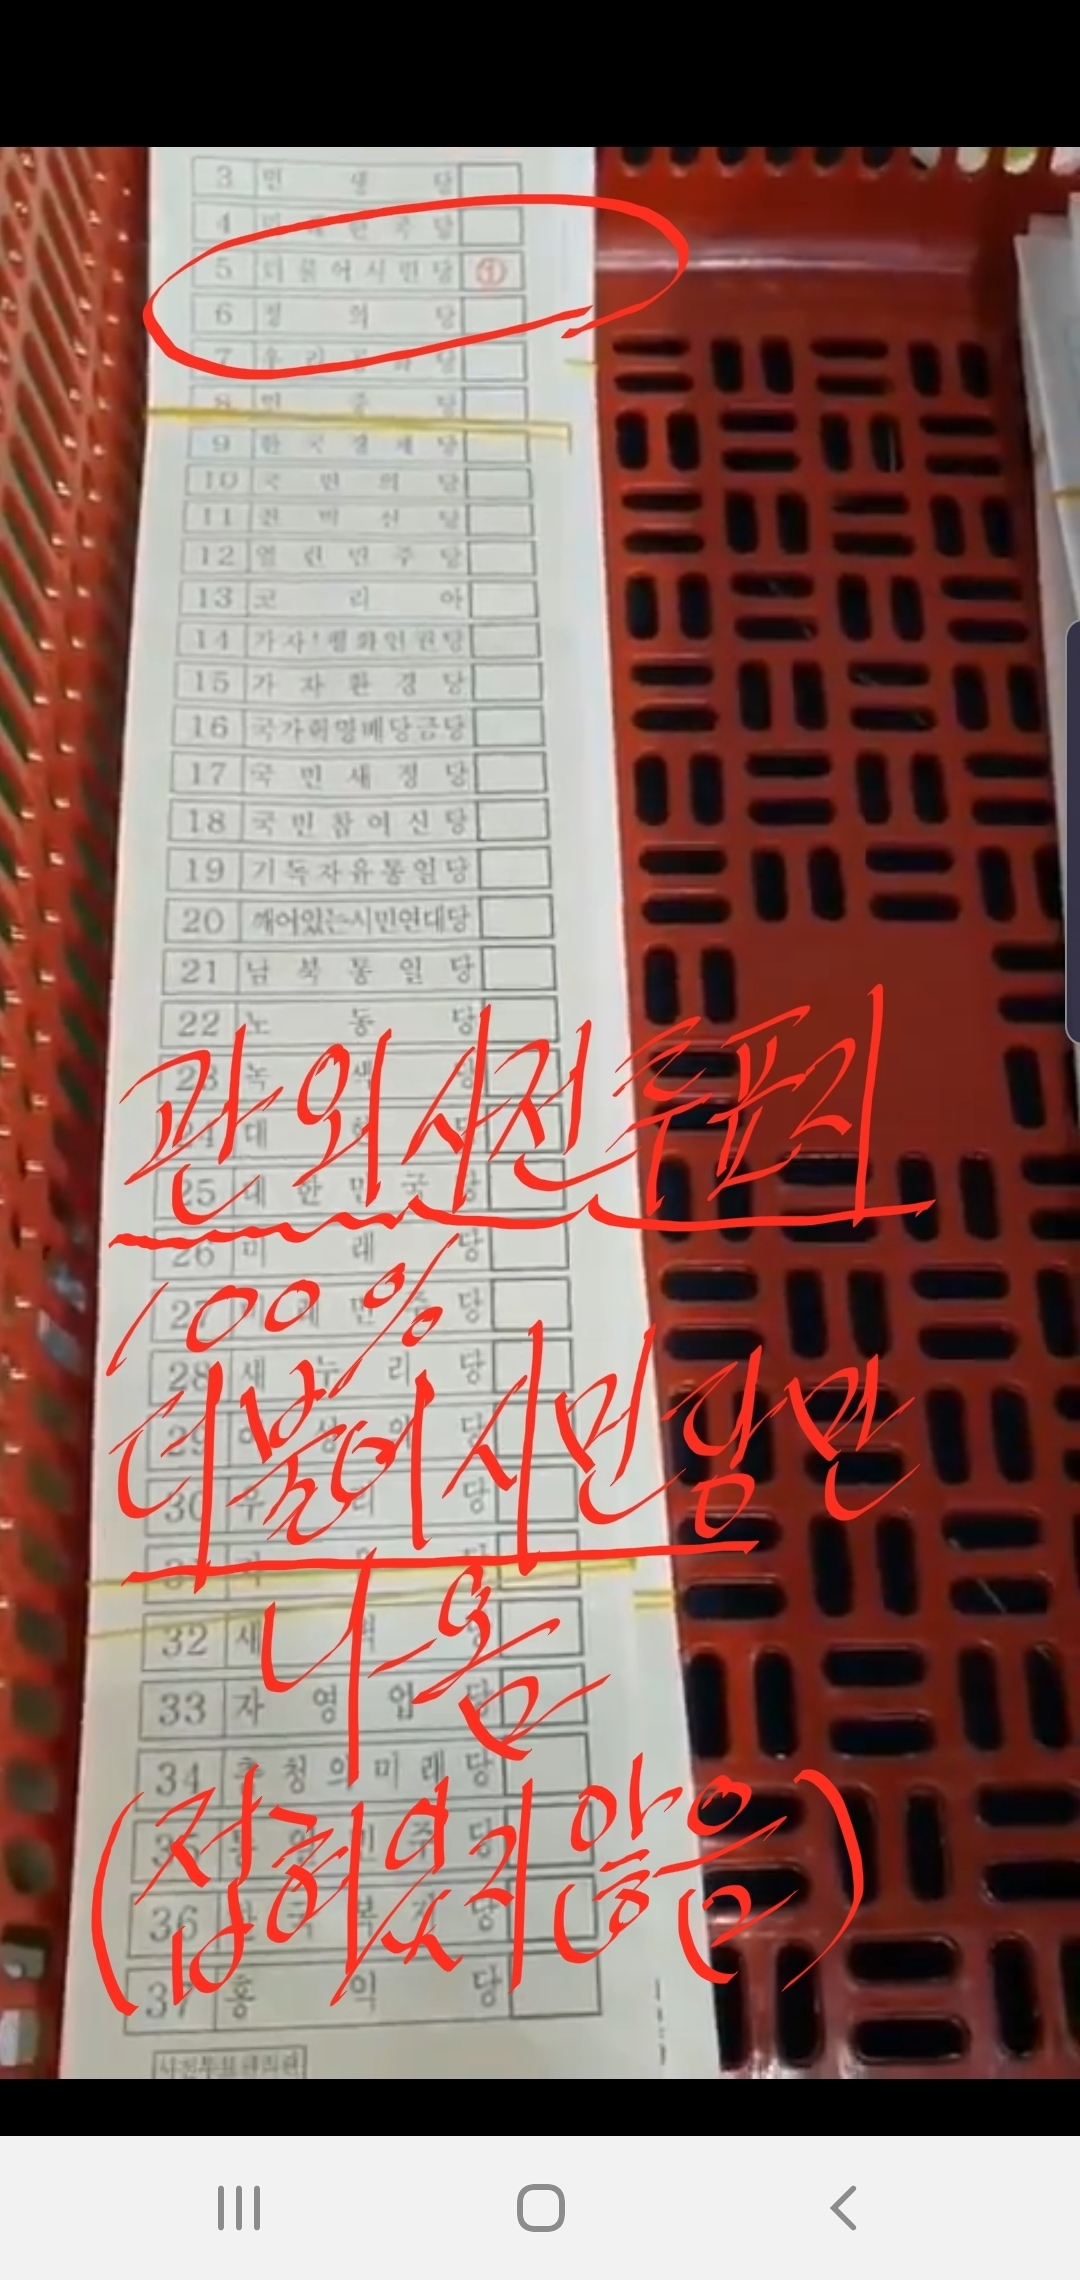 3 민 생 당
4 미 래 한 국 당
5 더 불 어 시 민 당
6 정 의 당
7 우 리 공 화 당
8 민 중 당
9 한 국 경 제 당
10 국 민 의 당
11 친 박 신 당
12 열 린 민 주 당
13 코 리 아
14 가자!평화인권당
15 가 자 환 경 당
16 국가혁명배당금당
17 국 민 새 정 당
18 국 민 참 여 신 당
19 기독자유통일당
20 깨어있는시민연대당
21 남 북 통 일 당
22 노 동 당
23 녹 색 당
관외사전투표지
24 대 한 당
25 대 한 민 국 당
26 미 래 당
100%
27 미 래 민 주 당
28 새 누 리 당
더불어시민당만
29 여 성 의 당
30 우 리 당
31 당
나옴
32 새 당
33 자 영 업 당
34 충 청 의 미 래 당
(접혀있지않음)
35 통 일 민 주 당
36 한 국 복 지 당
37 홍 익 당
사전투표관리관